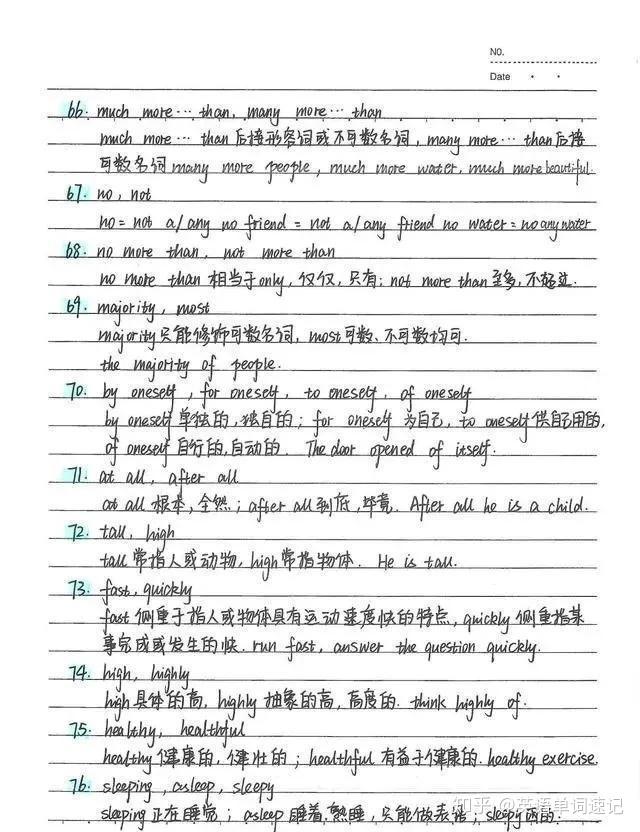 NO.
Date
66. much more… than, many more… than
much more… than 后接形容词或不可数名词, many more… than 后接
可数名词 many more people, much more water, much more beautiful.
67. no, not
no = not a/any no friend = not a/any friend no water = no any water
68. no more than, not more than
no more than 相当于only, 仅仅, 只有; not more than 至多, 不超过.
69. majority, most
majority只能修饰可数名词, most可数、不可数均可.
the majority of people.
70. by oneself, for oneself, to oneself, of oneself
by oneself 单独的, 独自的; for oneself 为自己, to oneself 供自己用的,
of oneself 自行的, 自动的. The door opened of itself.
71. at all, after all
at all 根本, 全然; after all 到底, 毕竟. After all he is a child.
72. tall, high
tall 常指人或动物, high 常指物体. He is tall.
73. fast, quickly
fast 侧重于指人或物体具有运动速度快的特点, quickly 侧重指某
事完成或发生的快. run fast, answer the question quickly.
74. high, highly
high 具体的高, highly 抽象的高, 高度的. think highly of.
75. healthy, healthful
healthy 健康的, 健壮的; healthful 有益于健康的. healthy exercise.
76. sleeping, asleep, sleepy
sleeping 正在睡觉; asleep 睡着, 熟睡, 只能做表语; sleepy 困的.
知乎 @英语单词速记